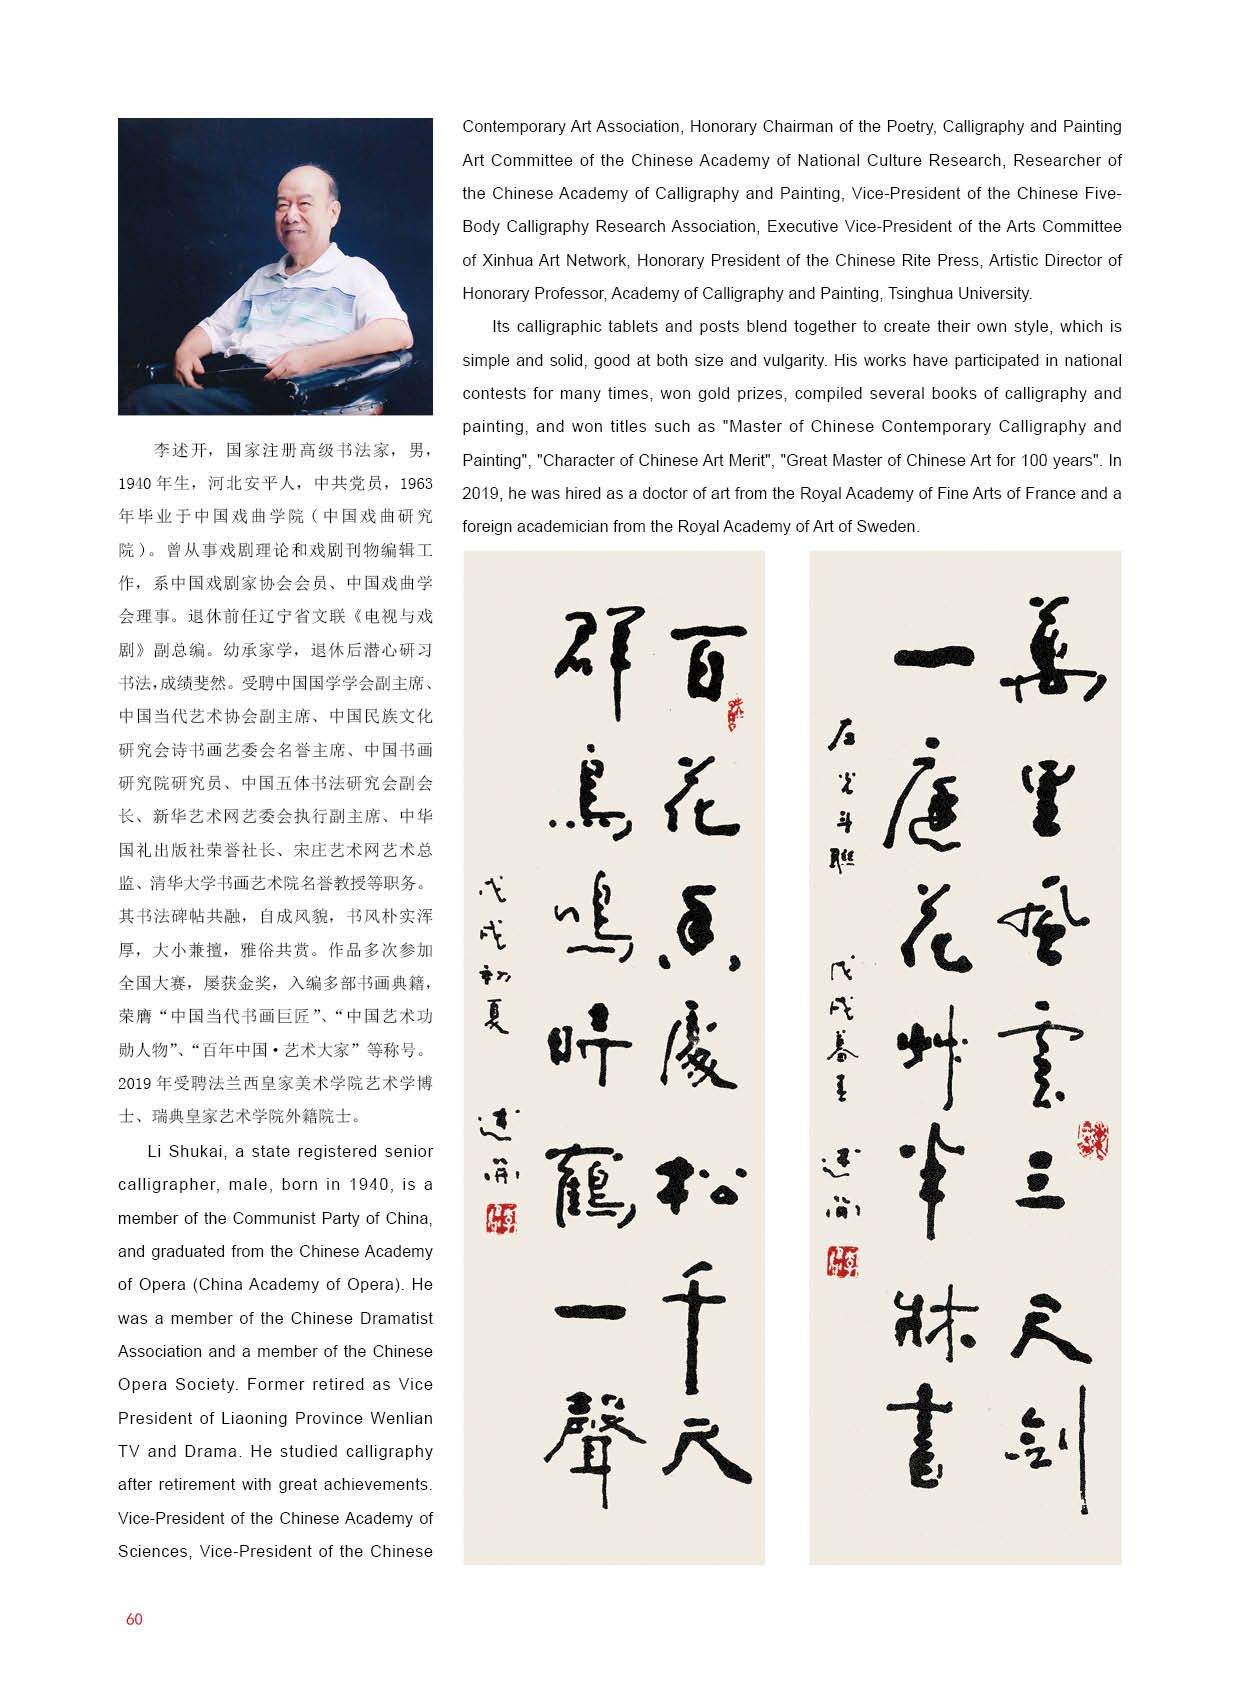 李述开，国家注册高级书法家，男，
1940 年生，河北安平人，中共党员，1963
年毕业于中国戏曲学院（中国戏曲研究
院）。曾从事戏剧理论和戏剧刊物编辑工
作，系中国戏剧家协会会员、中国戏曲学
会理事。退休前任辽宁省文联《电视与戏
剧》副总编。幼承家学，退休后潜心研习
书法，成绩斐然。受聘中国国学学会副主席、
中国当代艺术协会副主席、中国民族文化
研究会诗书画艺委会名誉主席、中国书画
研究院研究员、中国五体书法研究会副会
长、新华艺术网艺委会执行副主席、中华
国礼出版社荣誉社长、宋庄艺术网艺术总
监、清华大学书画艺术院名誉教授等职务。
其书法碑帖共融，自成风貌，书风朴实浑
厚，大小兼擅，雅俗共赏。作品多次参加
全国大赛，屡获金奖，入编多部书画典籍，
荣膺“中国当代书画巨匠”、“中国艺术功
勋人物”、“百年中国·艺术大家”等称号。
2019 年受聘法兰西皇家美术学院艺术学博
士、瑞典皇家艺术学院外籍院士。
Li Shukai, a state registered senior
calligrapher, male, born in 1940, is a
member of the Communist Party of China,
and graduated from the Chinese Academy
of Opera (China Academy of Opera). He
was a member of the Chinese Dramatist
Association and a member of the Chinese
Opera Society. Former retired as Vice
President of Liaoning Province Wenlian
TV and Drama. He studied calligraphy
after retirement with great achievements.
Vice-President of the Chinese Academy of
Sciences, Vice-President of the Chinese
Contemporary Art Association, Honorary Chairman of the Poetry, Calligraphy and Painting
Art Committee of the Chinese Academy of National Culture Research, Researcher of
the Chinese Academy of Calligraphy and Painting, Vice-President of the Chinese Five-
Body Calligraphy Research Association, Executive Vice-President of the Arts Committee
of Xinhua Art Network, Honorary President of the Chinese Rite Press, Artistic Director of
Honorary Professor, Academy of Calligraphy and Painting, Tsinghua University.
Its calligraphic tablets and posts blend together to create their own style, which is
simple and solid, good at both size and vulgarity. His works have participated in national
contests for many times, won gold prizes, compiled several books of calligraphy and
painting, and won titles such as "Master of Chinese Contemporary Calligraphy and
Painting", "Character of Chinese Art Merit", "Great Master of Chinese Art for 100 years". In
2019, he was hired as a doctor of art from the Royal Academy of Fine Arts of France and a
foreign academician from the Royal Academy of Art of Sweden.
萬里風雲三尺劍
一庭花艸半牀書
左光斗聯
戊戌暮春
述開
百花香處松千尺
群鳥鳴時鶴一聲
戊戌初夏
述開
60